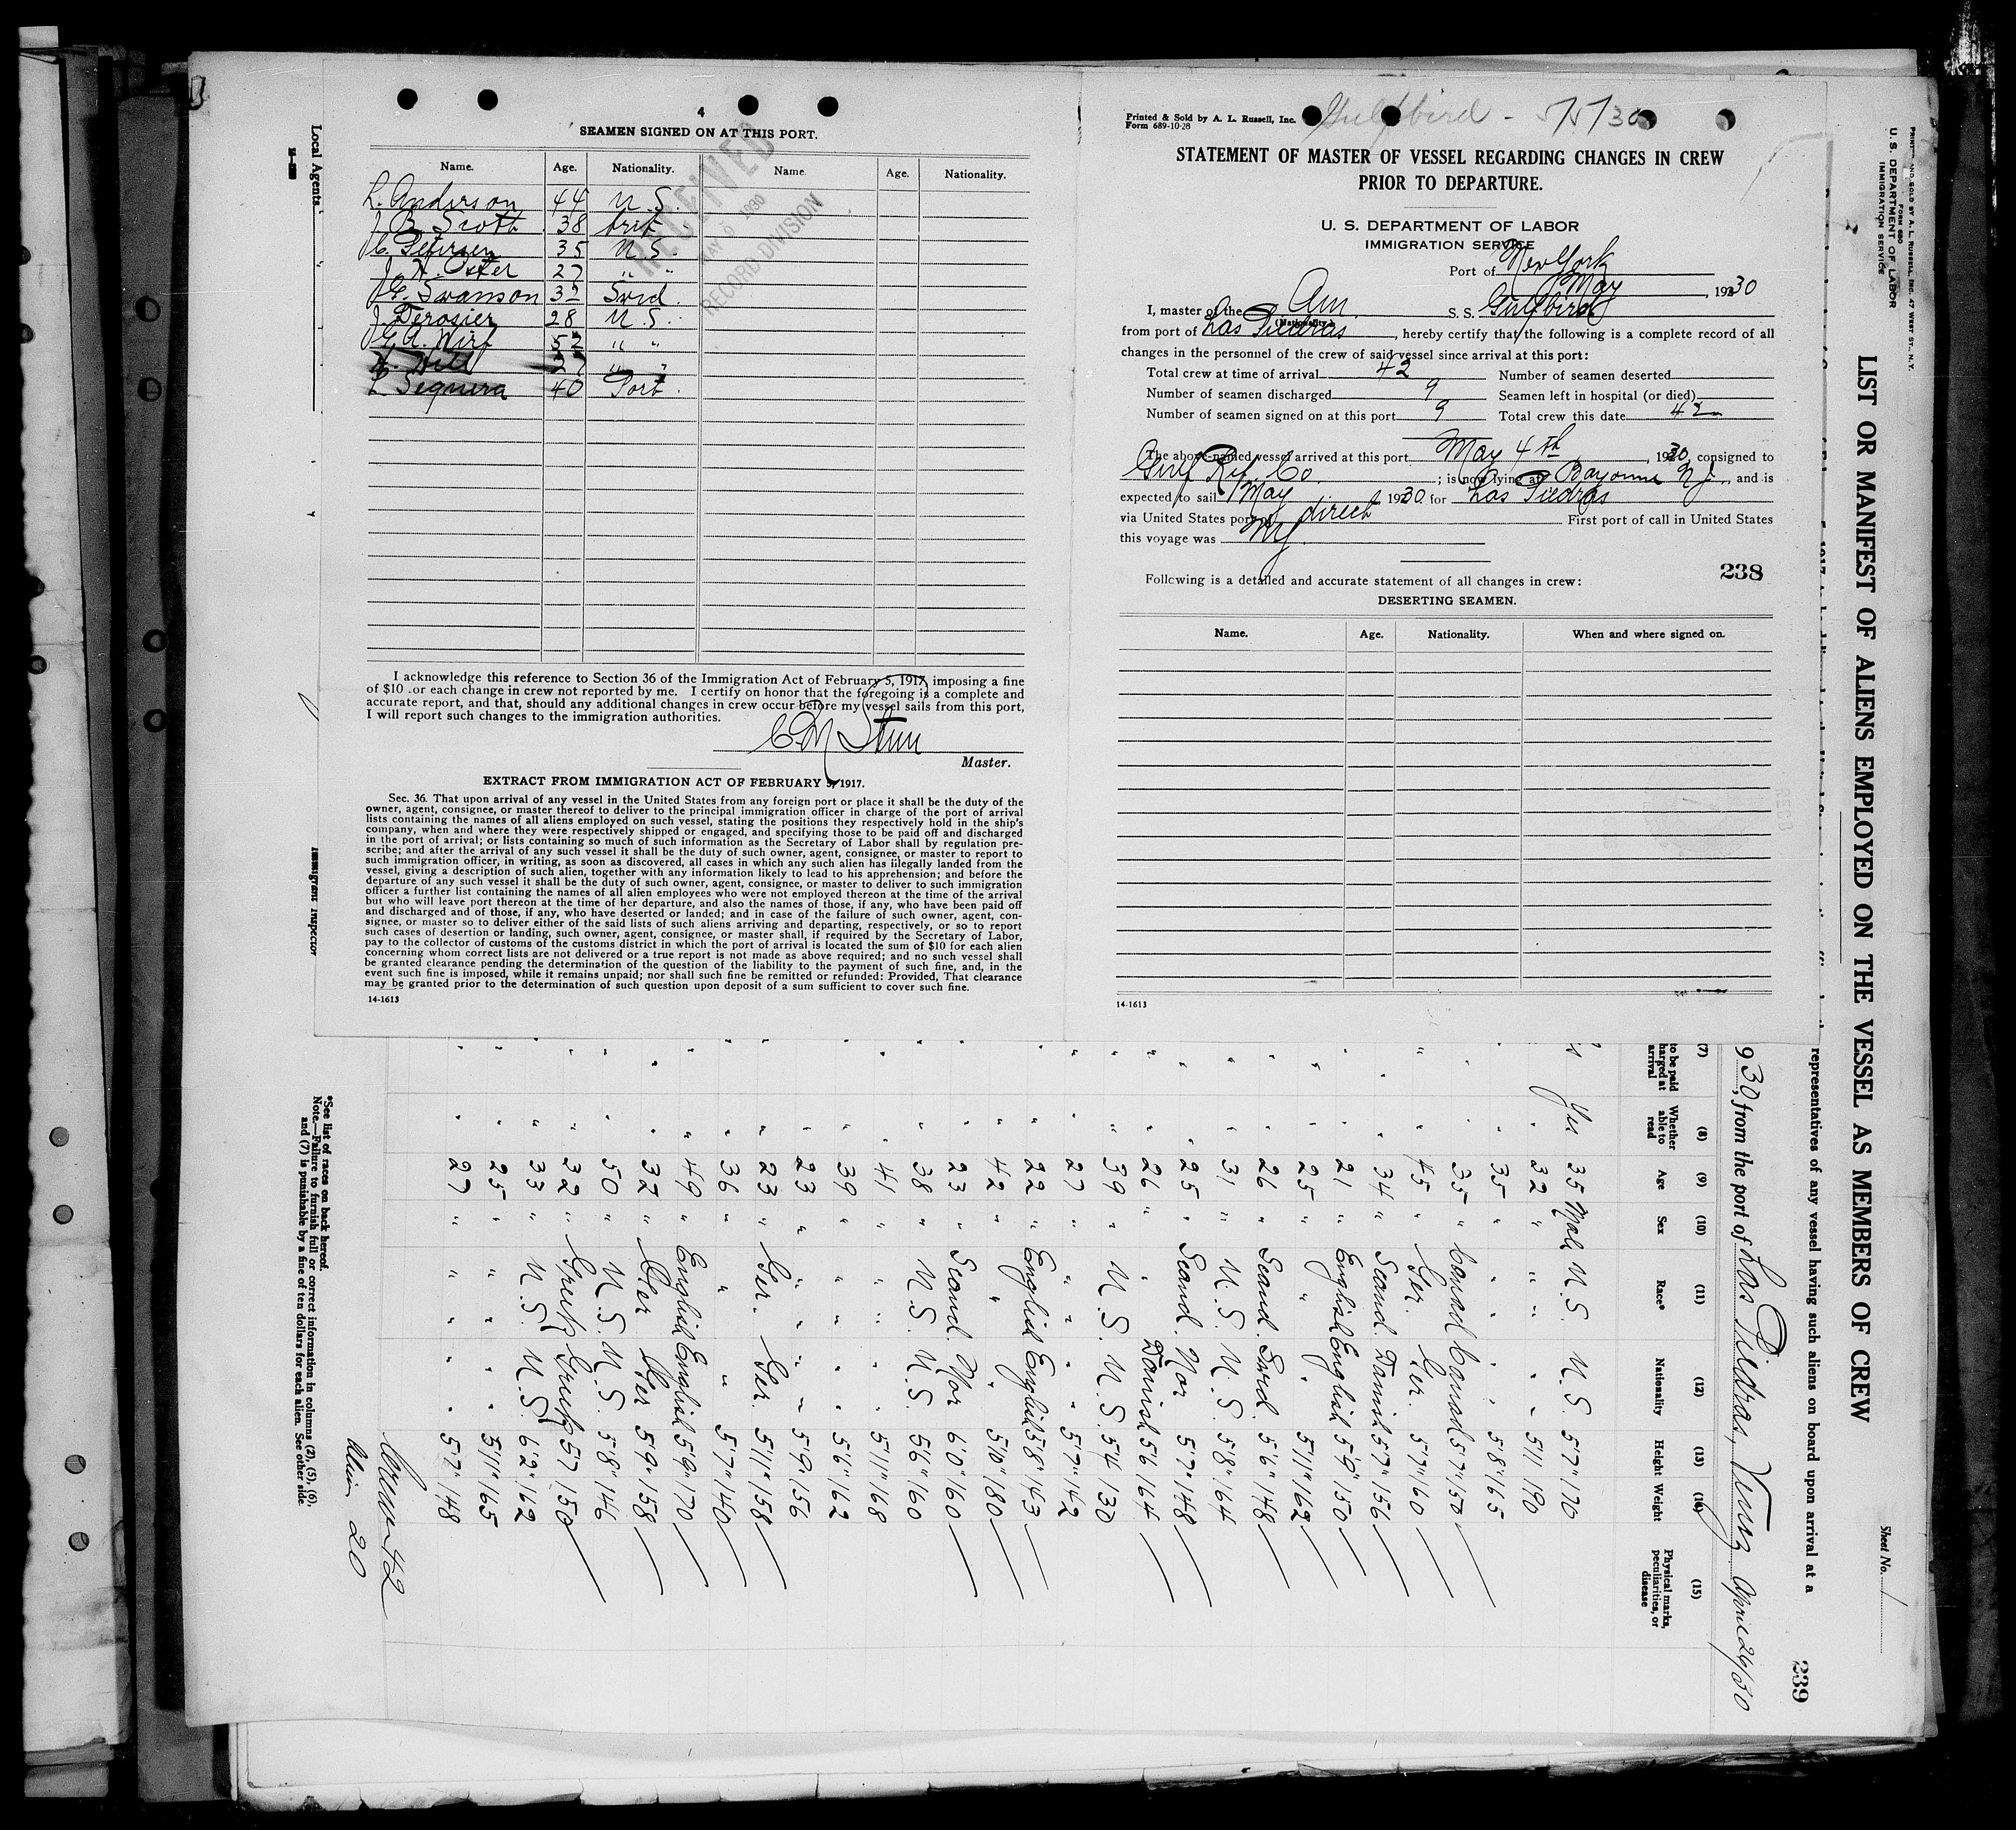 4
SEAMEN SIGNED ON AT THIS PORT.
Name. Age. Nationality. Name. Age. Nationality.
L. Anderson 44 U.S.
J. B. Scott 38 brit.
C. Petersen 35 U.S.
J. H. Oster 27 " "
G. Swanson 32 Swed.
J. Derosier 28 U.S.
G. A. Wirf 52 " "
H. Hill 27 " "
L. Sequera 40 Port.
RECEIVED
MAY 1930
RECORD DIVISION
I acknowledge this reference to Section 36 of the Immigration Act of February 5, 1917, imposing a fine
of $10 for each change in crew not reported by me. I certify on honor that the foregoing is a complete and
accurate report, and that, should any additional changes in crew occur before my vessel sails from this port,
I will report such changes to the immigration authorities.
Master.
EXTRACT FROM IMMIGRATION ACT OF FEBRUARY 5, 1917.
Sec. 36. That upon arrival of any vessel in the United States from any foreign port or place it shall be the duty of the
owner, agent, consignee, or master thereof to deliver to the principal immigration officer in charge of the port of arrival
lists containing the names of all aliens employed on such vessel, stating the positions they respectively hold in the ship's
company, when and where they were respectively shipped or engaged, and specifying those to be paid off and discharged
in the port of arrival; or lists containing so much of such information as the Secretary of Labor shall by regulation pre-
scribe; and after the arrival of any such vessel it shall be the duty of such owner, agent, consignee, or master to report to
such immigration officer, in writing, as soon as discovered, all cases in which any such alien has illegally landed from the
vessel, giving a description of such alien, together with any information likely to lead to his apprehension; and before the
departure of any such vessel it shall be the duty of such owner, agent, consignee, or master to deliver to such immigration
officer a further list containing the names of all alien employees who were not employed thereon at the time of the arrival
but who will leave port thereon at the time of her departure, and also the names of those, if any, who have been paid off
and discharged and of those, if any, who have deserted or landed; and in case of the failure of such owner, agent, con-
signee, or master so to deliver either of the said lists of such aliens arriving and departing, respectively, or so to report
such cases of desertion or landing, such owner, agent, consignee, or master shall, if required by the Secretary of Labor,
pay to the collector of customs of the customs district in which the port of arrival is located the sum of $10 for each alien
concerning whom correct lists are not delivered or a true report is not made as above required; and no such vessel shall
be granted clearance pending the determination of the question of the liability to the payment of such fine, and, in the
event such fine is imposed, while it remains unpaid; nor shall such fine be remitted or refunded: Provided, That clearance
may be granted prior to the determination of such question upon deposit of a sum sufficient to cover such fine.
14-1613
Local Agents
Immigrant Inspector
Printed & Sold by A. L. Russell, Inc.
Form 689-10-28
Gulfbird - 5/5/30
STATEMENT OF MASTER OF VESSEL REGARDING CHANGES IN CREW
PRIOR TO DEPARTURE.
U. S. DEPARTMENT OF LABOR
IMMIGRATION SERVICE
Port of New York
May, 1930
I, master of the Am. S. S. Gulfbird
(Nationality)
from port of Las Piedras, hereby certify that the following is a complete record of all
changes in the personnel of the crew of said vessel since arrival at this port:
Total crew at time of arrival 42 Number of seamen deserted
Number of seamen discharged 9 Seamen left in hospital (or died)
Number of seamen signed on at this port 9 Total crew this date 42
The above-named vessel arrived at this port May 4th, 1930, consigned to
Gulf Ref. Co.; is now lying at Bayonne N.J., and is
expected to sail May 1930 for Las Piedras
via United States port of direct First port of call in United States
this voyage was NY
Following is a detailed and accurate statement of all changes in crew:
238
DESERTING SEAMEN.
Name. Age. Nationality. When and where signed on.
14-1613
PRINTED AND SOLD BY A. L. RUSSELL, INC. 47 WEST ST., N.Y.
FORM 680
U. S. DEPARTMENT OF LABOR
IMMIGRATION SERVICE
LIST OR MANIFEST OF ALIENS EMPLOYED ON THE VESSEL AS MEMBERS OF CREW
Sheet No. 1
239
representatives of any vessel having such aliens on board upon arrival at a
930, from the port of Las Piedras, Venez April 26/30
(7) (8) (9) (10) (11) (12) (13) (14) (15)
to be paid
harged at
arrival
Whether
able to
read
Age Sex Race* Nationality Height Weight
Physical marks,
peculiarities, or
disease
Yes 35 Male U.S. U.S. 5'7" 170
" 32 " " " 5'11 190
" 35 " " " 5'8" 165
" 35 " Canad Canad 5'7" 150
" 45 " Ger. Ger. 5'7" 160
" 34 " Scand. Danish 5'7" 156
" 21 " English English 5'9" 150
" 25 " " " 5'11" 162
" 26 " Scand. Swed. 5'6" 148
" 31 " U.S. U.S. 5'8" 164
" 25 " Scand. Nor 5'7" 148
" 26 " " Danish 5'6 164
" 39 " U.S. U.S. 5'4 130
" 27 " " " 5'7" 142
" 22 " English English 5'8" 143
" 42 " " " 5'10" 180
" 23 " Scand. Nor 6'0" 160
" 38 " U.S. U.S. 5'6" 160
" 41 " " " 5'11" 168
" 39 " " " 5'6" 162
" 23 " " " 5'9" 156
" 23 " Ger. Ger. 5'11" 158
" 36 " " " 5'7" 140
" 49 " English English 5'9" 170
" 37 " Ger Ger 5'9" 158
" 50 " U.S. U.S. 5'8" 146
" 32 " Greek Greek 5'7 150
" 33 " U.S. U.S. 6'2" 162
" 25 " " " 5'11" 165
" 27 " " " 5'7" 148
Crew 42
Alien 20
*See list of races on back hereof.
Note.—Failure to furnish full or correct information in columns (2), (5), (6),
and (7) is punishable by a fine of ten dollars for each alien. See other side